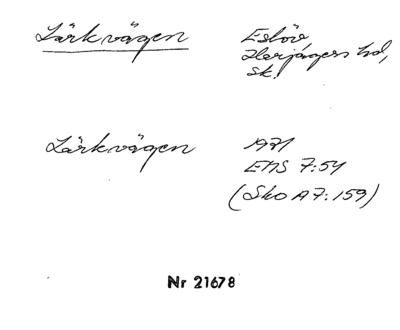 Lärkvägen
Eslöv
Harjagers hd,
Sk.
Lärkvägen
1971
ENS 7:54
(Sko A7:159)
Nr 21678